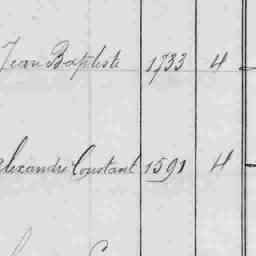 Jean Baptiste 1733 4
Alexandre Constant 1591 4